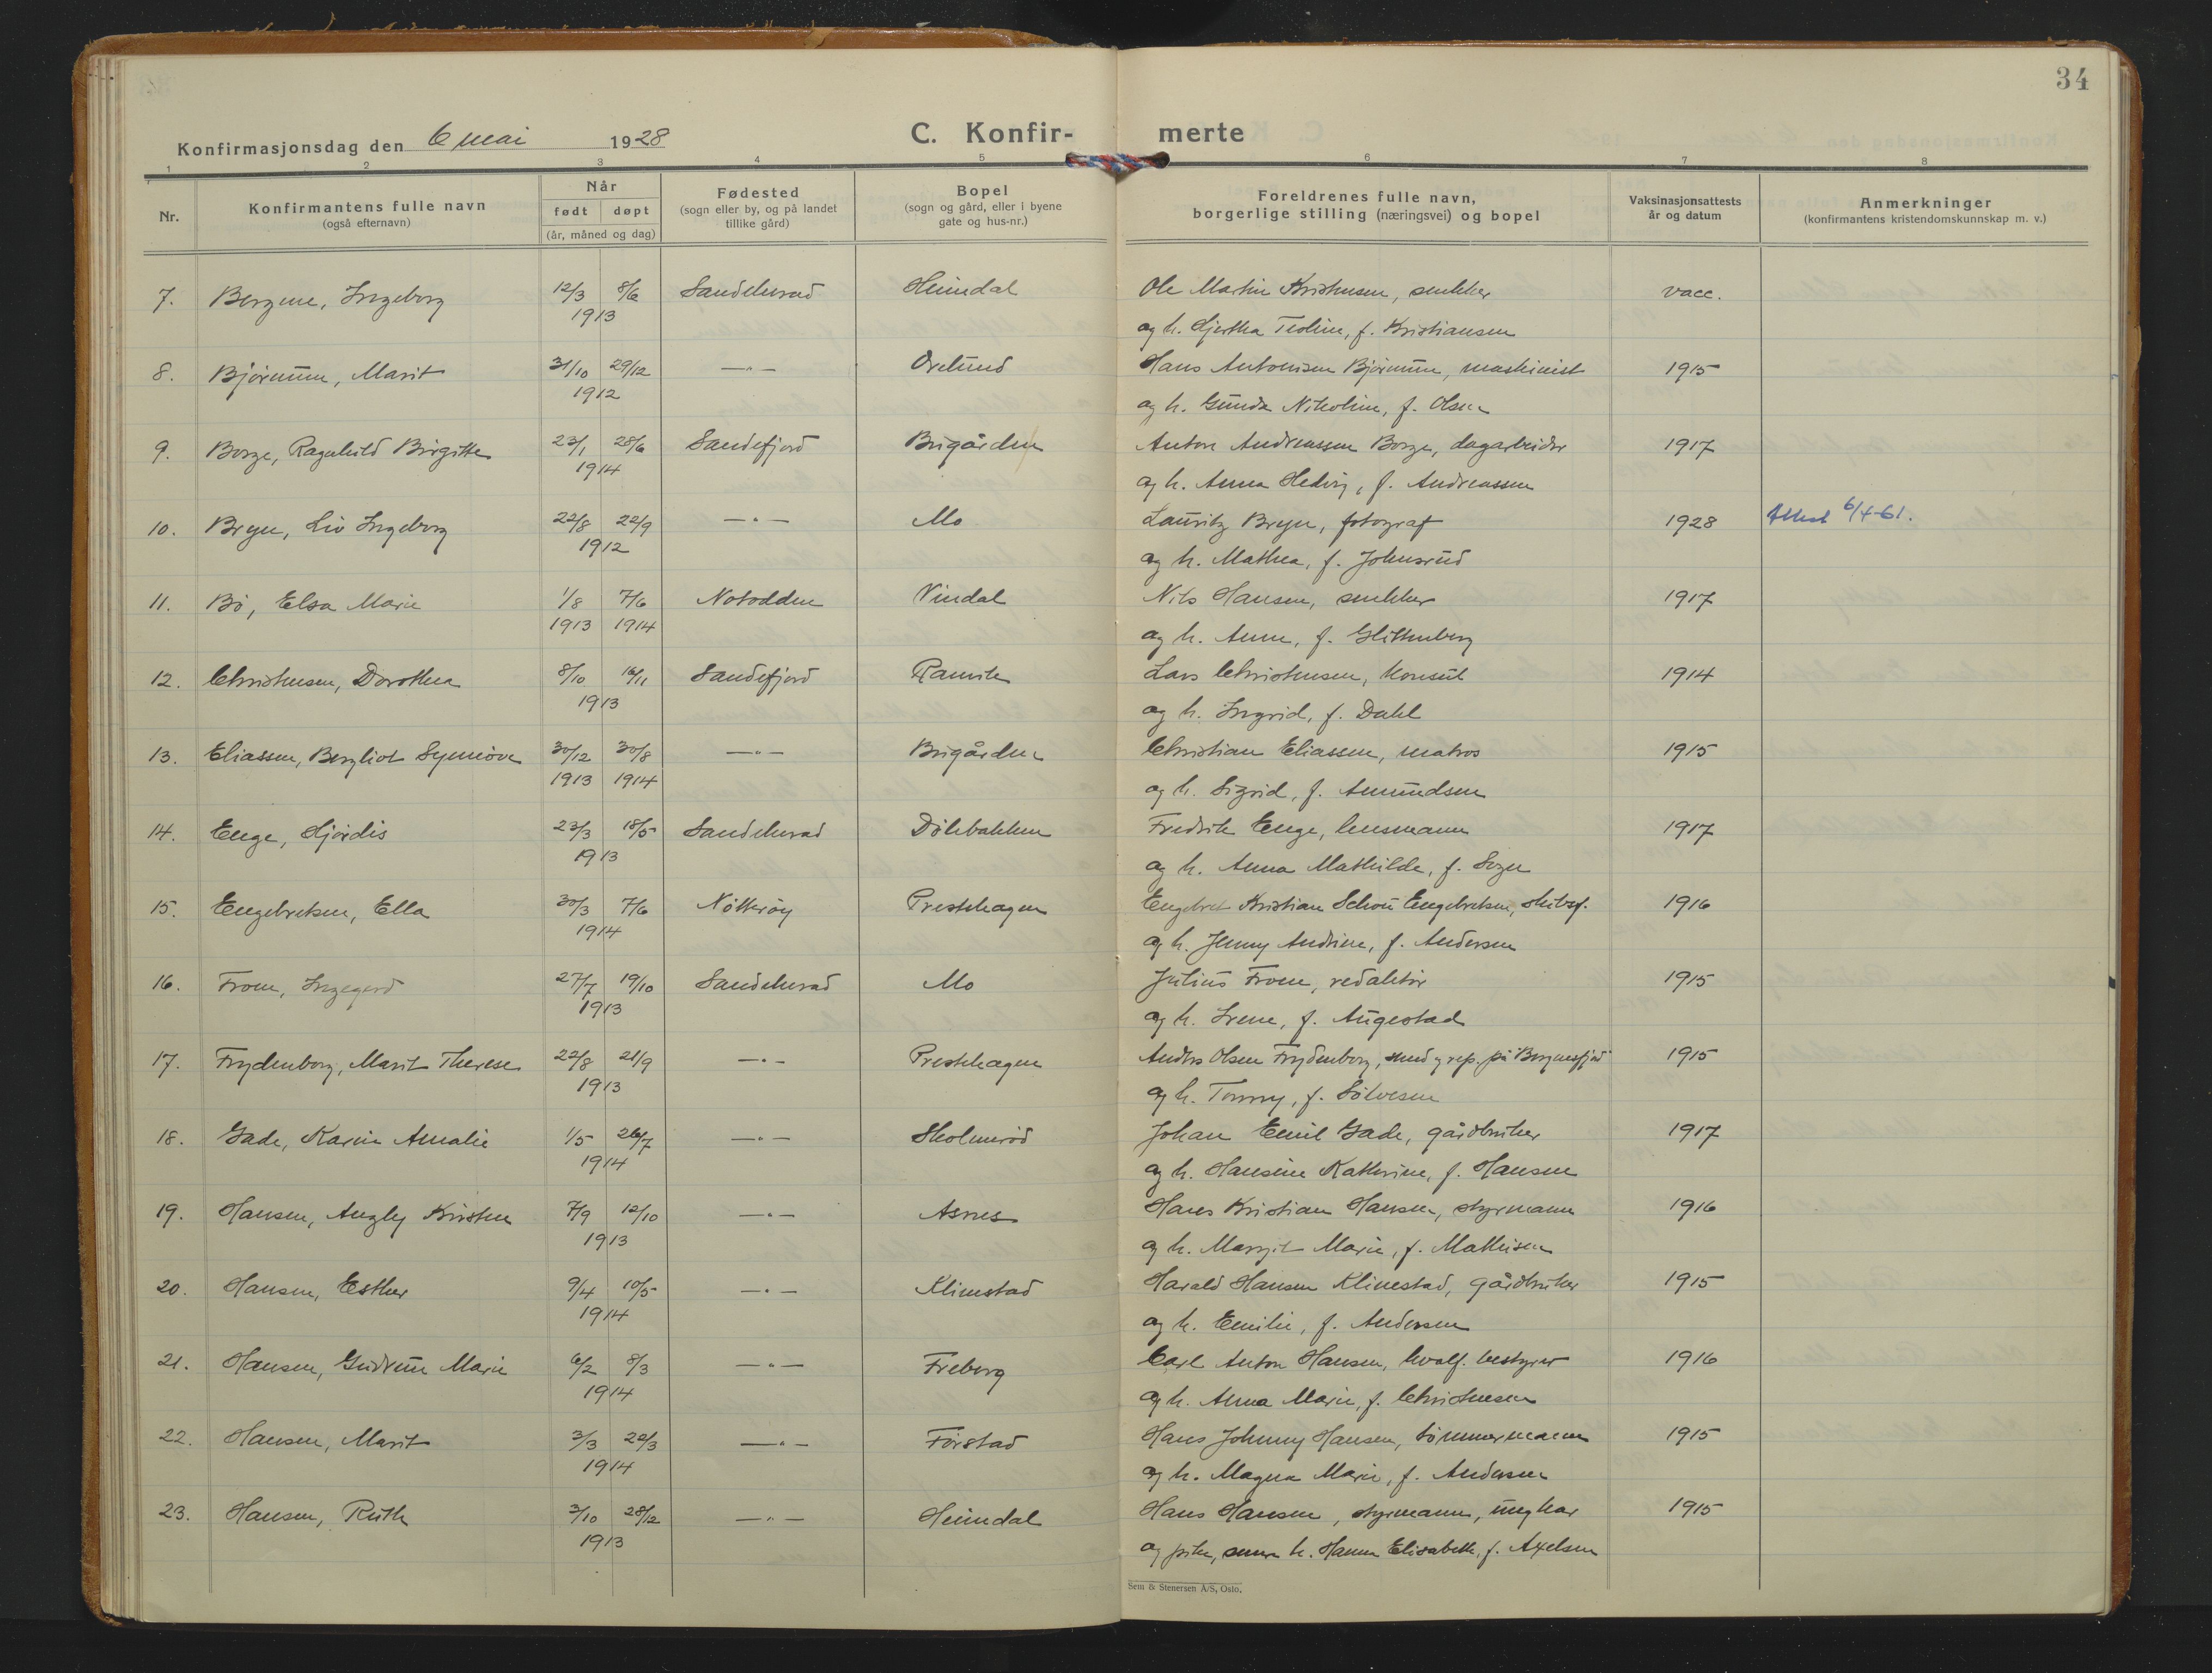 34
Konfirmasjonsdag den 6 mai 1928
C. Konfir- merte
1 2 3 4 5 6 7 8
Nr.
Konfirmantens fulle navn
(også efternavn)
Når
født døpt
(år, måned og dag)
Fødested
(sogn eller by, og på landet
tillike gård)
Bopel
(sogn og gård, eller i byene
gate og hus-nr.)
Foreldrenes fulle navn,
borgerlige stilling (næringsvei) og bopel
Vaksinasjonsattests
år og datum
Anmerkninger
(konfirmantens kristendomskunnskap m. v.)
7. Bergene, Ingeborg 12/3 8/6 Sandeherad Heimdal Ole Martin Kristensen, snekker vacc.
1913 og h. Hjertha Teoline, f. Kristiansen
8. Bjørnum, Marit 31/10 29/12 —"— Ovelund Hans Antonisen Bjørnum, maskinist 1915
1912 og h. Gunda Nikoline, f. Olsen
9. Borge, Ragnhild Birgitte 23/1 28/6 Sandefjord Brigården Anton Andreassen Borge, dagarbeider 1917
1914 og h. Anna Hedvig, f. Andreassen
10. Bryn, Liv Ingeborg 22/8 22/9 —"— Mo Lauritz Bryn, fotograf 1928 Attest 6/4-61.
1912 og h. Mathea, f. Johnsrud
11. Bø, Elsa Marie 1/8 7/6 Notodden Vindal Nils Hansen, snekker 1917
1913 1914 og h. Anne, f. Glittenberg
12. Christensen, Dorothea 8/10 16/11 Sandefjord Ranvik Lars Christensen, konsul 1914
1913 og h. Ingrid, f. Dahl
13. Eliassen, Bergliot Synnøve 30/12 30/8 —"— Brigården Christian Eliassen, matros 1915
1913 1914 og h. Sigrid, f. Amundsen
14. Enge, Hjørdis 23/3 18/5 Sandeherad Dølebakken Fredrik Enge, lensmann 1917
1913 og h. Anna Mathilde, f. Sogn
15. Engebretsen, Ella 30/3 7/6 Nøtterøy Prestehagen Engebret Kristian Schou Engebretsen, skibsf. 1916
1914 og h. Jenny Andrine, f. Andersen
16. From, Ingegerd 27/7 19/10 Sandeherad Mo Julius From, redaktør 1915
1913 og h. Irene, f. Augestad
17. Frydenborg, Marit Therese 22/8 21/9 —"— Prestehagen Anders Olsen Frydenborg, smed og rep. på "Bergensfjord" 1915
1913 og h. Tommy, f. Sølvesen
18. Gade, Karin Amalie 1/5 26/7 —"— Skolmerød Johan Emil Gade, gårdbruker 1917
1914 og h. Hansine Kathrine, f. Hansen
19. Hansen, Augly Kirsten 7/9 12/10 —"— Asnes Hans Kristian Hansen, styrmann 1916
1913 og h. Margit Marie, f. Mathisen
20. Hansen, Esther 9/4 10/5 —"— Klinestad Harald Hansen Klinestad, gårdbruker 1915
1914 og h. Emilie, f. Andersen
21. Hansen, Gudrun Marie 6/2 8/3 —"— Freberg Carl Anton Hansen, hvalf. bestyrer 1916
1914 og h. Anna Marie, f. Christensen
22. Hansen, Marit 3/3 22/3 —"— Førstad Hans Johnny Hansen, tømmermann 1915
1914 og h. Magna Marie, f. Andersen
23. Hansen, Ruth 3/10 28/12 —"— Heimdal Hans Hansen, styrmann, ungkar 1915
1913 og pike, senere h. Hanna Elisabeth, f. Axelsen
Sem & Stenersen A/S, Oslo.